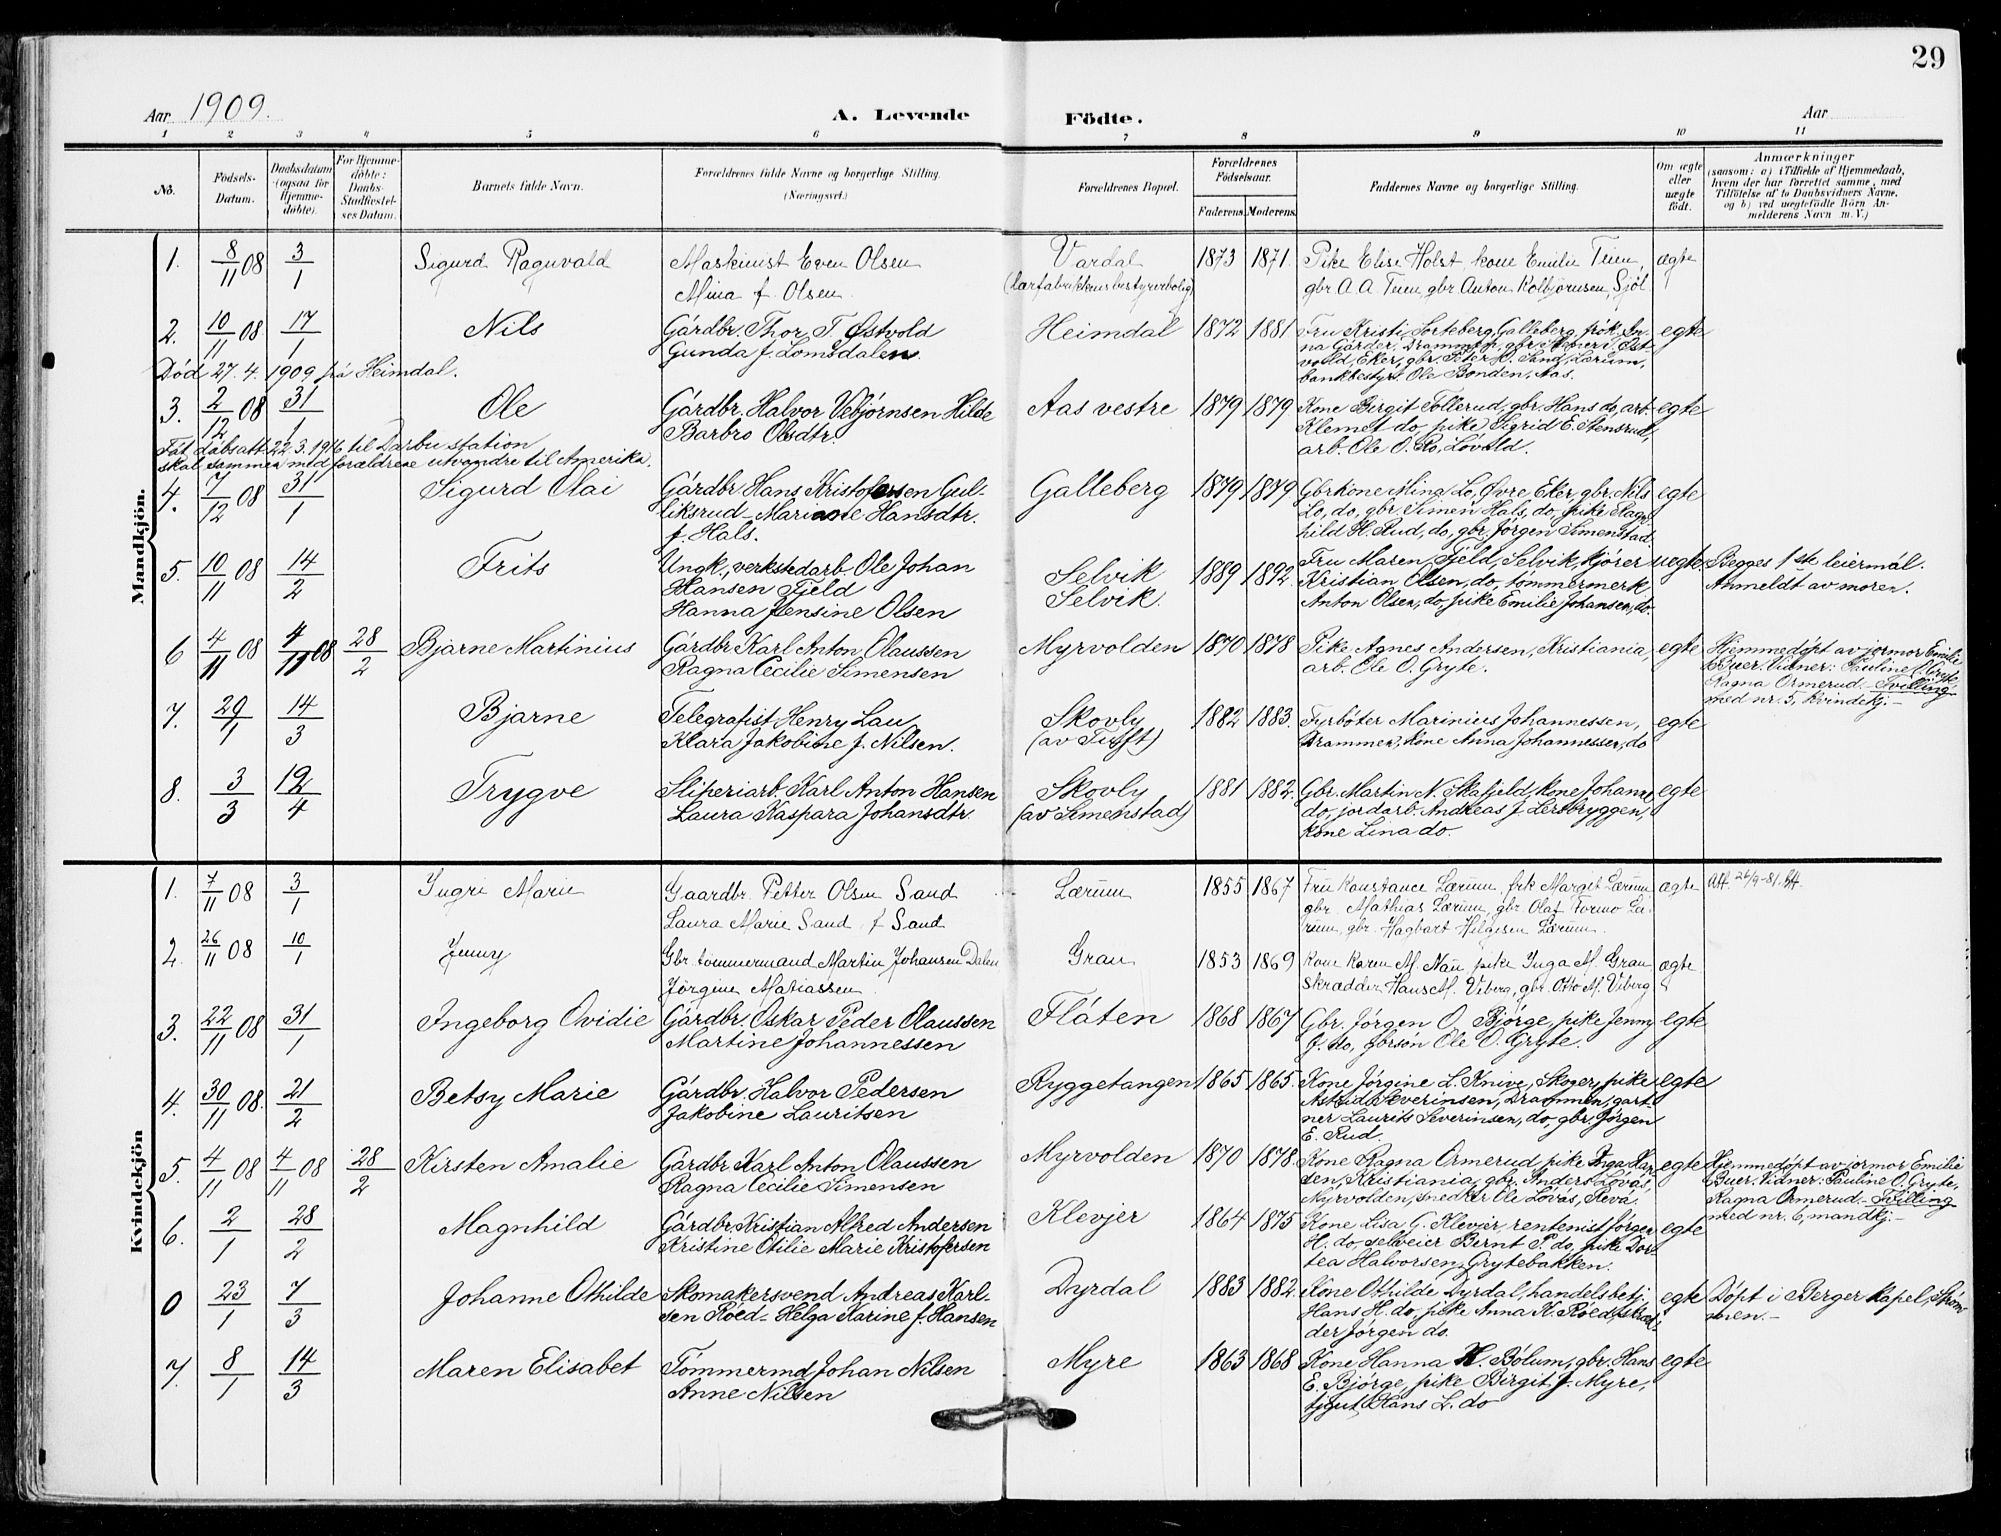 29
Aar 1909.
A. Levende
Födte.
Aar
1 2 3 4 5 6 7 8 9 10 11
No.
Födsels-
Datum.
Daabsdatum
(ogsaa for
Hjemme-
döbte).
For Hjemme-
döbte:
Daabs-
Stadfæstel-
ses Datum.
Barnets fulde Navn.
Forældrenes fulde Navne og borgerlige Stilling.
(Næringsvei.)
Forældrenes Bopæl.
Forældrenes
Födselsaar.
Faderens. Moderens.
Faddernes Navne og borgerlige Stilling.
Om ægte
eller
uægte
født.
Anmærkninger
(saasom: a) i Tilfælde af Hjemmedaab,
hvem der har forrettet samme, med
Tilföielse af to Daabsvidners Navne,
og b) ved uægtefödte Börn An-
melderens Navn m. V.)
Mandkjön.
1. 8/11 08 3/1 Sigurd Ragnvald Maskinist Even Olsen Vardal 1873 1871. Pike Elise Holst, kone Emilie Teien, ægte
Mina f. Olsen. gbr A. A. Teien, gbr Anton Kolbjørnsen, Sjöl
2. 10/11 08 17/1 Nils Gårdbr. Thor T. Østvold Heimdal 1872 1881. Fru Kristi Sorteberg, Galleberg, frøk. An- egte
Gunda f. Lomsdalen. na Gårder, Drammen, gbr. T. Øst-
vold, Eker, gbr. Peter O. Sand, Lærum,
Død 27. 4. 1909 på Heimdal. bankbestyr. Ole Bonden, Aas.
3. 2/12 08 31/1 Ole Gårdbr. Halvor Vebjørnsen Hilde Aas vestre 1879 1879 Kone Birgit Tollerud, gbr. Hans do, arb. egte
Barbro Olsdtr. Klemet do, pike Sigrid E. Stensrud,
arb. Ole O. Ro, Løvald.
Fåt dåbsatt. 22. 3. 1916 til Darbu station
skal sammen med forældrene utvandre til Amerika.
4. 7/12 08 31/1 Sigurd Olai Gårdbr. Hans Kristofersen Gul- Galleberg 1879 1879 Gbrkone Mina Lo, Øvre Eker, gbr. Nils egte
liksrud - Mariane Hansdtr. Lo, do, gbr. Simen Hals, do, pike Ragn-
f. Hals. hild H. Rud, do, gbr. Jørgen Simenstad.
5. 10/11 08 14/2 Frits Ungk., verkstedarb. Ole Johan Selvik 1889 1892. Fru Maren Fjeld, Selvik, kjører uegte Begges 1ste leiermål.
Hansen Fjeld Selvik. Kristian Olsen, do, tømmermerk. Anmeldt av moren.
Hanna Jensine Olsen Anton Olsen, do, pike Emilie Johansen, do.
6 4/11 08 4/11 08 28/2 Bjarne Martinius Gårdbr. Karl Anton Olaussen Myrvolden 1870 1878 Pike Agnes Andersen, Kristiania, egte Hjemmedøpt av jormor Emilie
Ragna Cecilie Simensen arb. Ole O. Gryte. Buer. Vidner: Pauline O. Gryte,
Ragna Ormerud. - Tvilling
med nr. 5, kvindekj. -
7. 29/1 14/3 Bjarne Telegrafist Henry Lau Skovly 1882 1883. Fyrbøter Marinius Johannessen, egte
Klara Jakobine f. Nilsen. (av Tufft) Drammen, kone Anna Johannessen, do
8. 3/3 12/4 Trygve Sliperiarb. Karl Anton Hansen Skovly 1881 1882. Gbr. Martin N. Skafjeld, kone Johanne egte
Laura Kaspara Johansdtr. (av Simenstad) do, jordarb. Andreas J. Lersbryggen,
kone Lina do.
Kvindekjön
1. 7/11 08 3/1 Ingri Marie Gaardbr. Petter Olsen Sand Lærum 1855 1867 Fru Konstance Lærum, frk Margit Lærum ægte Att. 26/9-81.
Laura Marie Sand f Sand gbr. Mathias Lærum, gbr. Olaf Formo Læ-
rum, gbr. Hagbart Helgesen Lærum.
2. 26/11 08 10/1 Jenny Gbr. tømmermand Martin Johansen Dalen Gran 1853 1869 Kone Karen M. Nau, pike Inga M. Gran ægte
Jørgine Matiassen. Skrædder Hans M. Viberg, gbr. Otto M. Viberg
3. 22/11 08 31/1 Ingeborg Ovidie Gårdbr. Oskar Peder Olaussen Flåten 1868 1867 Gbr. Jørgen O. Bjørge, pike Jenny egte
Martine Johannessen J. do, gbrsøn Ole O. Gryte.
4. 30/11 08. 21/2 Betsy Marie Gårdbr. Halvor Pedersen Ryggetangen 1865 1865. Kone Jørgine L. Knive, Skoger, pike egte
Jakobine Lauritsen Astrid Severinsen, Drammen, gart-
ner Laurits Severinsen, do, gbr. Jørgen
E. Rud.
5. 4/11 08 4/11 08 28/2 Kirsten Amalie Gårdbr. Karl Anton Olaussen Myrvolden 1870 1878. Kone Ragna Ormerud, pike Inga Han- egte Hjemmedøpt av jormor Emilie
Ragna Cecilie Simensen sen, Kristiania, gbr. Anders Løvås, Buer. Vidner: Pauline O. Gryte,
Myrvolden, snedker Ole Løvås, Revå, Ragna Ormerud. - Tvilling
med nr. 6, mandkj. -
6. 2/1 28/2 Magnhild Gårdbr. Kristian Alfred Andersen Klevjer 1864 1875 Kone Lisa G. Klevjer, rentenist Jørgen egte
Kristine Otilie Marie Kristofersen H. do, selveier Bernt P. do, pike Dor-
tea Halvorsen, Grytebakken.
0 23/1 7/3 Johanne Othilde Skomakersvend Andreas Karl- Dyrdal 1883 1882. Kone Othilde Dyrdal, handelsbetj. egte Døpt i Berger kapel, Strøm-
sen Røed - Helga Karine f. Hansen Hans H. do, pike Anna K. Røed, skræd- men. -
der Jørgen do.
7. 8/1 14/3 Maren Elisabet Tømmermd. Johan Nilsen Myre 1863 1868 Kone Hanna K. Bolum, gbr. Hans egte
Anne Nilsen E. Bjørge, pike Birgit J. Myre,
tjgut Hans L. do